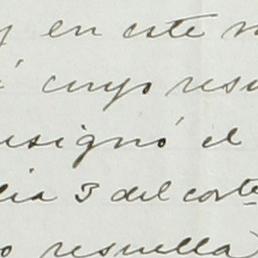 y en este
cuyo resu
esignó el
dia 3 del corte
o resuella